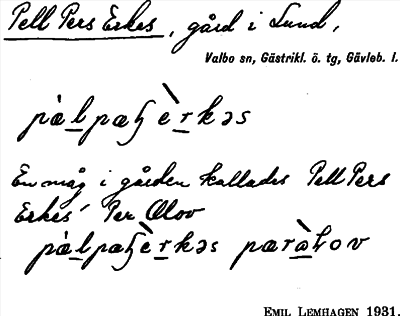 Pell Pers Erkes, gård i Lund,
Valbo sn, Gästrikl. ö. tg, Gävleb. l.
En måg i gården kallades Pell Pers
Erkes' Per Olov
EMIL LEMHAGEN 1931.